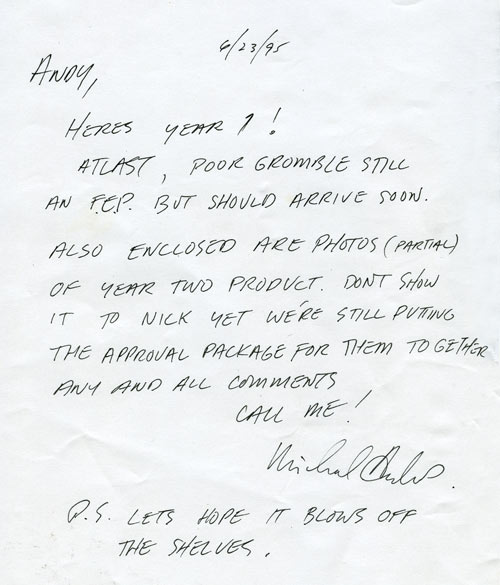 6/23/95
ANDY,
HERES YEAR 1!
ATLAST, POOR GROMBLE STILL
AN F.E.P. BUT SHOULD ARRIVE SOON.
ALSO ENCLOSED ARE PHOTOS (PARTIAL)
OF YEAR TWO PRODUCT. DONT SHOW
IT TO NICK YET WE'RE STILL PUTTING
THE APPROVAL PACKAGE FOR THEM TOGETHER
ANY AND ALL COMMENTS
CALL ME!
Michael
P.S. LETS HOPE IT BLOWS OFF
THE SHELVES.